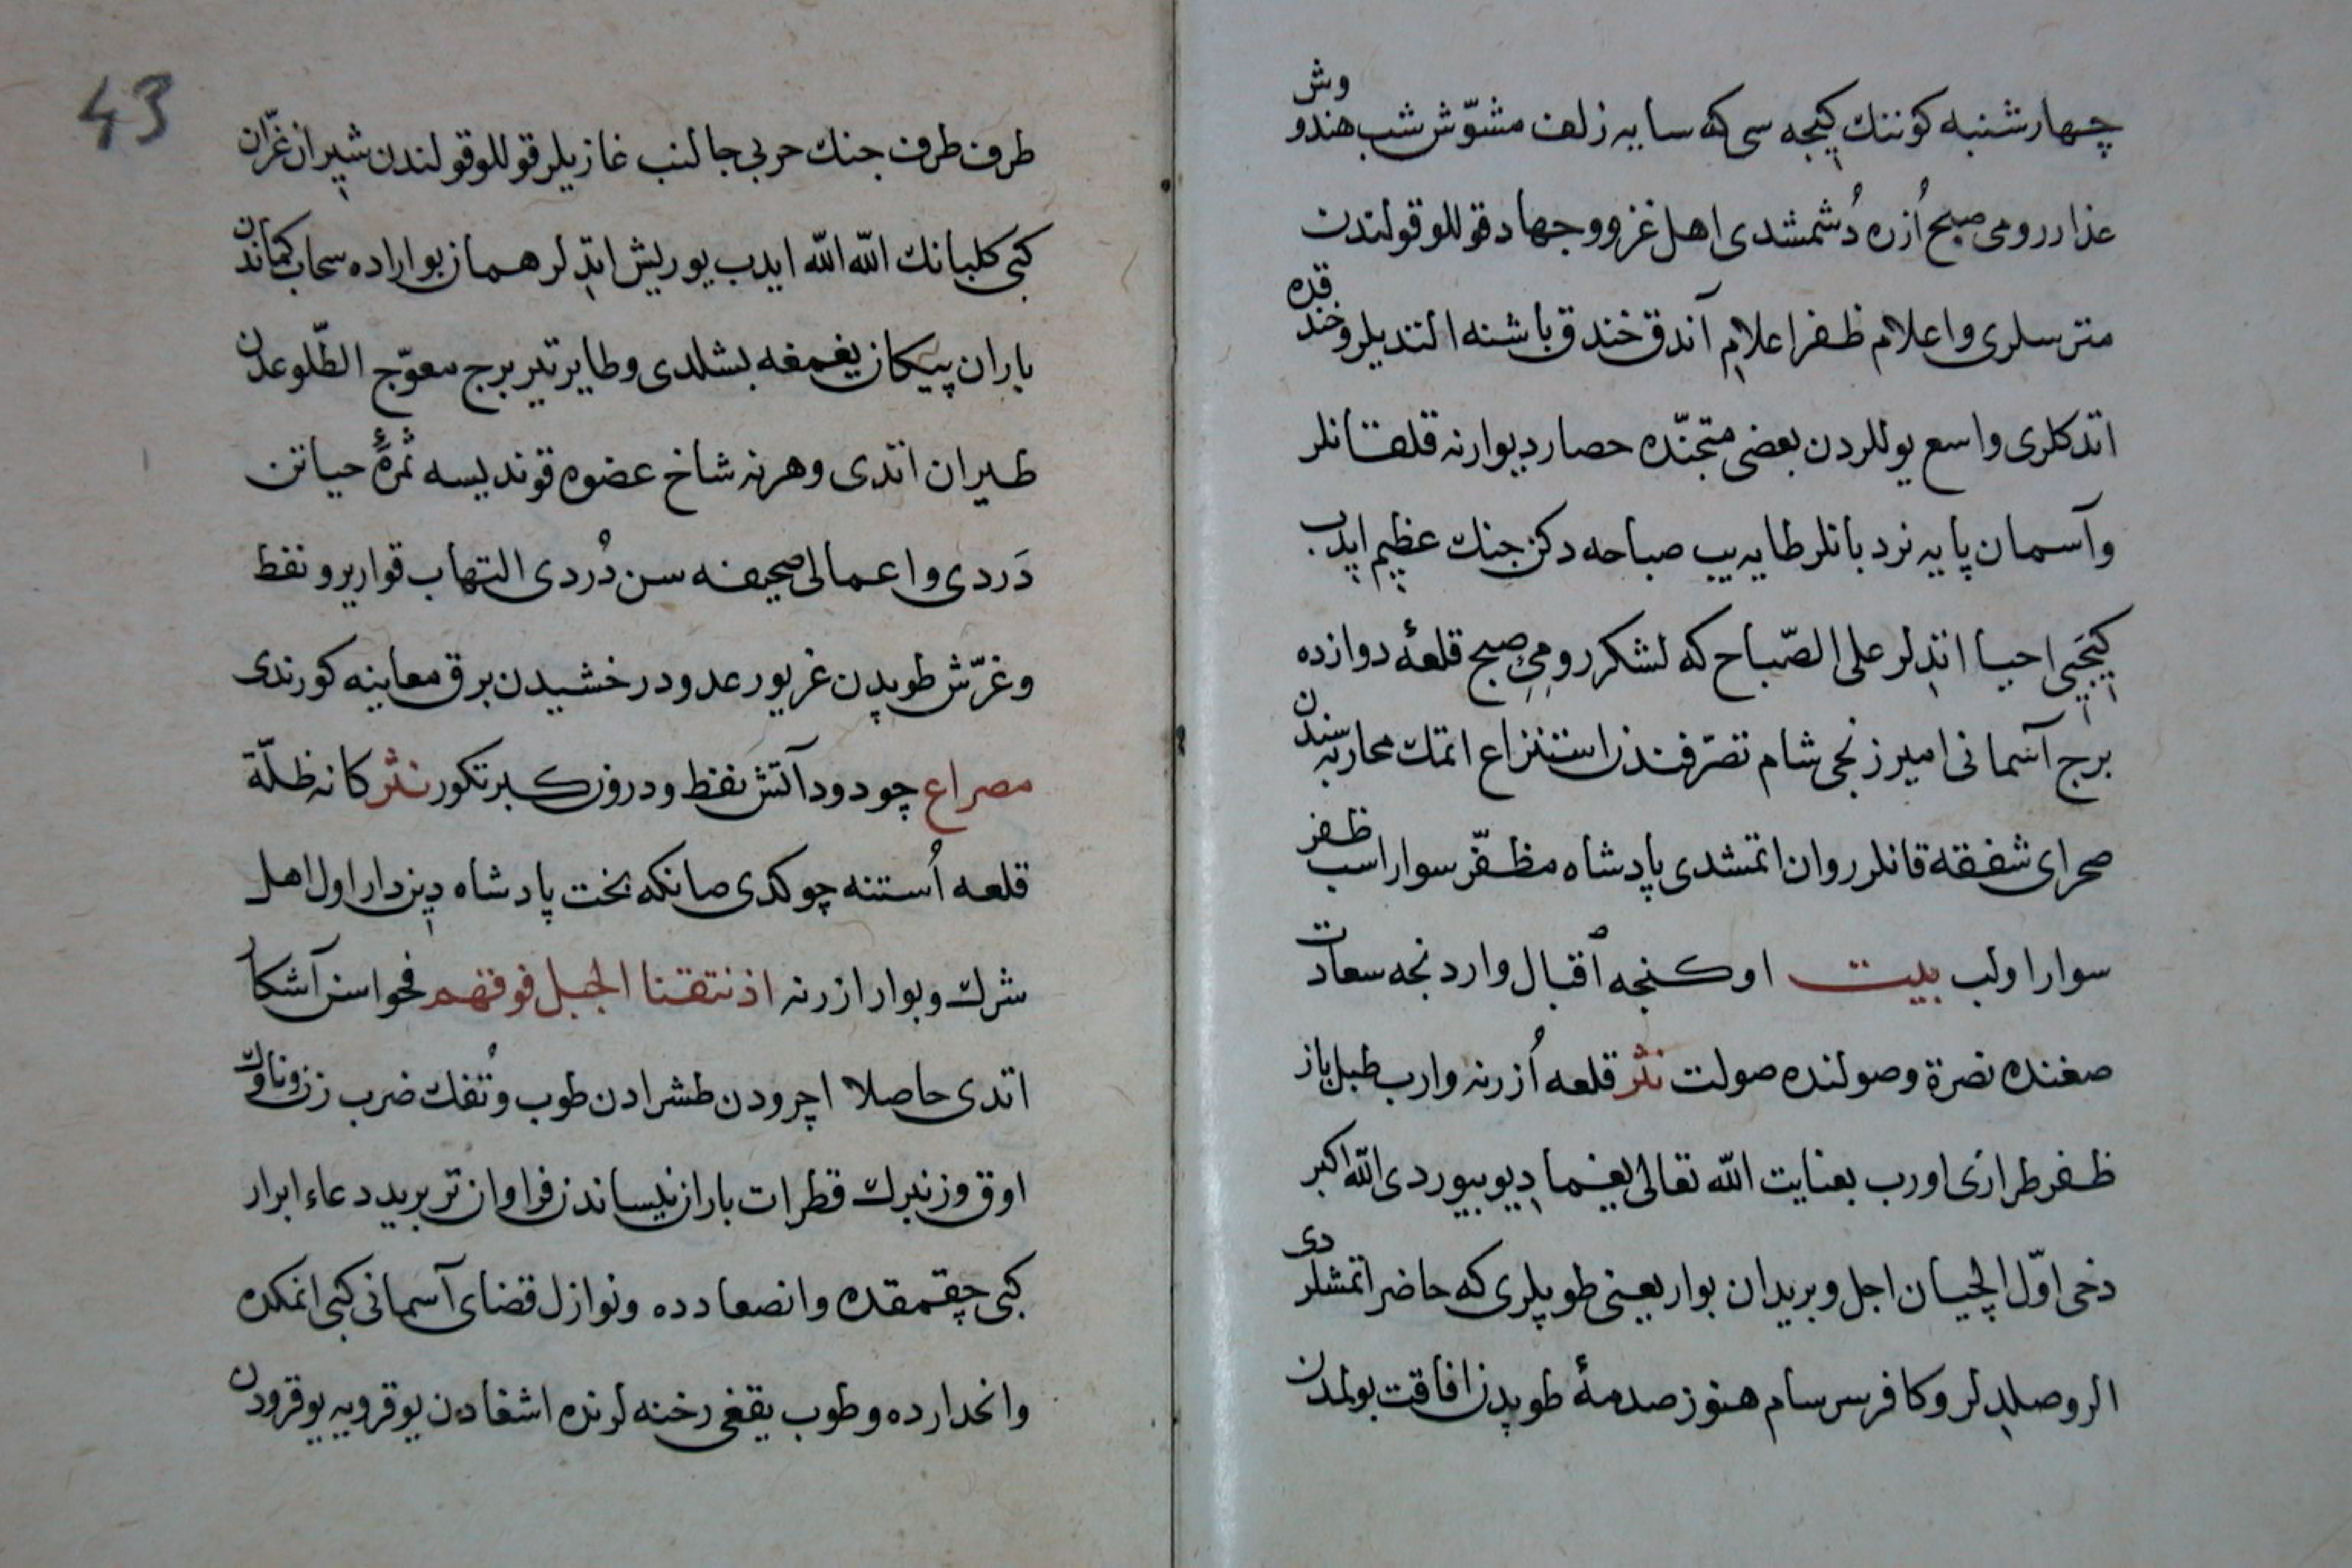 چهارشنبه كوننك كيجه سی كه سایه زلف مشوّش شب هندو وش
عذار رومی صبح اُزره دُشمشدی اهل غزو وجهاد قوللو قولندن
مترسلری واعلام ظفر اعلام آندق خندق باشنه التدیلر وخندقده
اتدكلری واسع یوللردن بعضی متجنّده حصار دیوارنه قلقانلر
وآسمان پایه نردبانلر طایه یب صباحه دكن جنك عظیم ایدب
كیجیی احیا اتدلر علی الصّباح كه لشكر رومیِ صبح قلعهٔ دوازده
برج آسمانی امیر زنجی شام تصرّفندن استنزاع اتمك محاربه سندن
صحرای شفقه قانلر روان اتمشدی پادشاه مظفّر سوار اسب ظفر
سوار اولب بیت اوكنجه اقبال وارد نجه سعادت
صغنده نصرة وصولنده صولت نثر قلعه اُزرنه وارب طبل باز
ظفر طرازی اورب بعنایت الله تعالی یغما دیو بیوردی الله اكبر
دخی اوّل ایلچیان اجل وبریدان بوار یعنی طوپلری كه حاضر اتمشلردی
الر وصلدلر وكافر سرسام هنوز صدمهٔ طوپدن افاقت بولمدن
43
طرف طرف جنك حربی جالنب غازیلر قوللو قولندن شیران غرّان
كبی كلبانك الله الله ایدب یوریش اتدلر همان بو اراده سحاب كماندن
باران پیكان یغمغه بشلدی وطایر تیر برج معوّج الطّلوعدن
طیران اتدی وهر نه شاخ عضوه قوندیسه ثمرهٔ حیاتن
دَردی واعمالی صحیفه سن دُردی التهاب قواریر ونفط
وغرّش طوپدن غریو رعد ودرخشیدن برق معاینه كورندی
مصراع چو دود آتش نفط ودرون كبر تكور نثر كانه ظلّة
قلعه اُستنه چوكدی صانكه بخت پادشاه دیندار اول اهل
شرك وبوار ازرنه اذ نتقنا الجبل فوقهم فحواسن آشكار
اتدی حاصلا اچرودن طشرادن طوب وتُفك ضرب زن وناوك
اوق وزنبرك قطرات باران نیساندن فراوان تر برید دعاء ابرار
كبی چقمقده وانصعادده ونوازل قضای آسمانی كبی انمكده
وانحدارده وطوب یقغی رخنه لرنده اشغادن یوقرویه یوقرودن